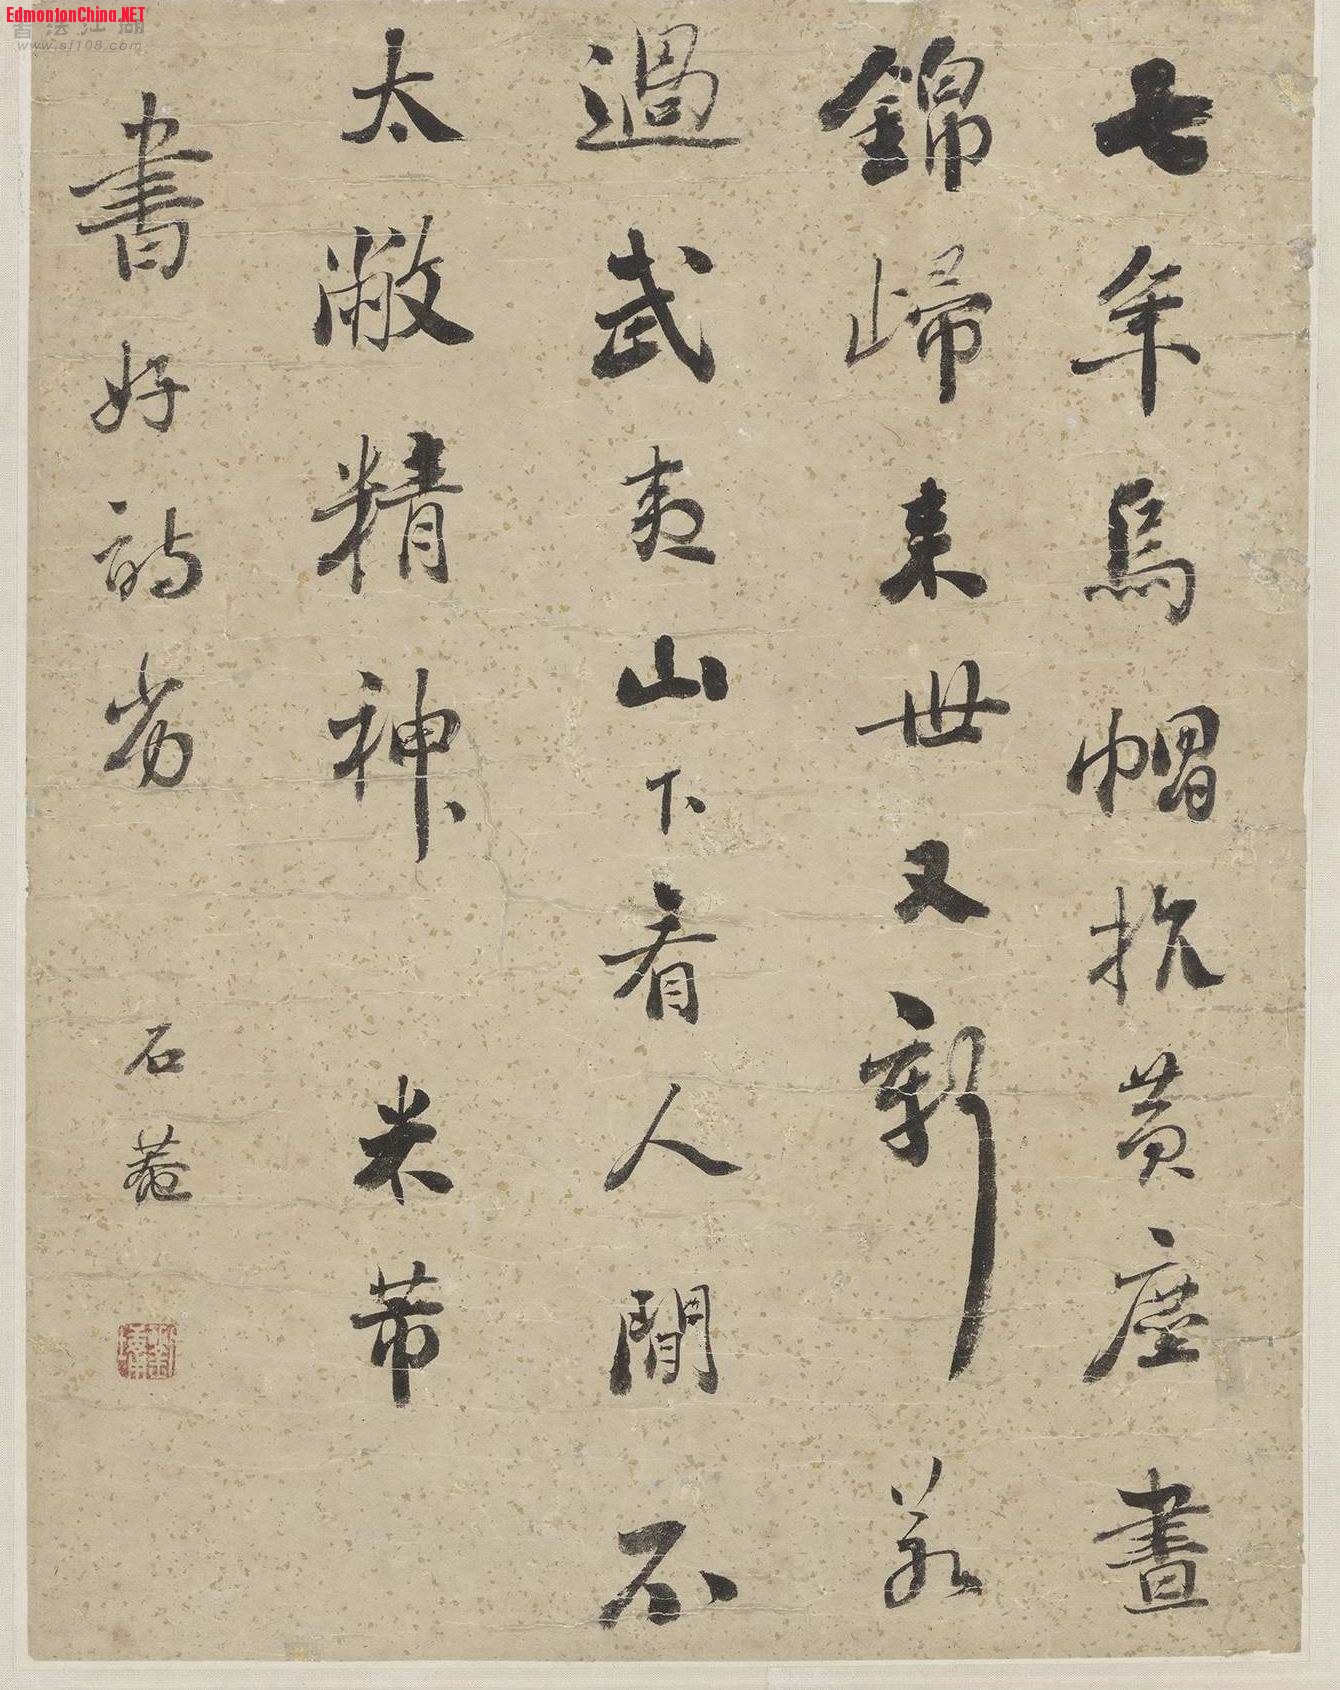 EdmontonChina.NET
書法江湖
www.sf108.com
七年烏帽抗黄塵晝
錦歸来世又新若
過武夷山下看人間不
太敝精神 米芾
書好詩劣 石菴
劉墉